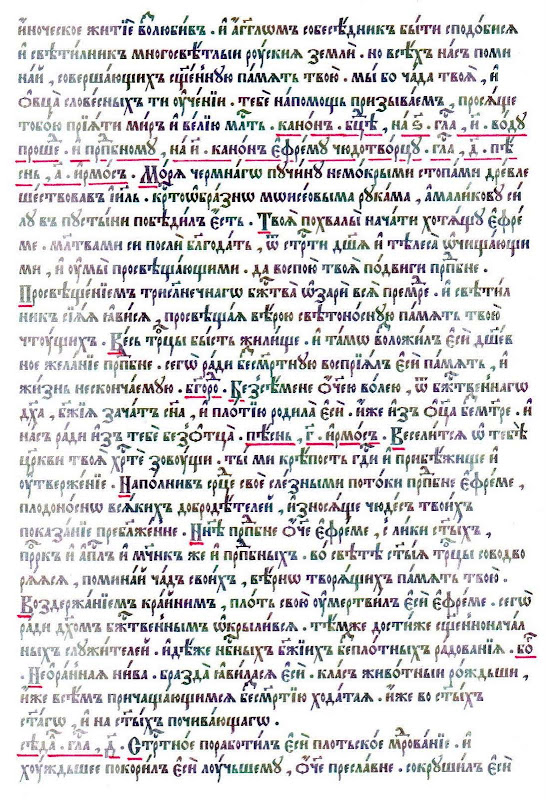 и҆́ноческое житїѐ во́злюби́въ . и҆ а҆́гг҃лѡмъ собесѣ́дникъ бы́ти сподо́бисѧ
и҆ свѣти́лникъ многосвѣ́тлыи роу́скиѧ землѝ . но всѣ́хъ на́съ поми
на́й , соверша́ющихъ сщ҃е́ннꙋю па́мѧть твою̀ . мы́ бо ча́да твоѧ̀ , и҆
ѻ҆́вца̀ слове́сныхъ ти оу҆че́нїи . тебѐ на́помощь призыва́емъ , просѧ́ще
тобо́ю прїѧ́ти ми́ръ и҆ ве́лїю мл҇ть . кано́нъ . бц҃ѣ , на ѕ҃ . гла , и҃ . во́дꙋ
проше . и҆ прпбномꙋ , на и҃ . кано́нъ є҆фре́мꙋ чюдотво́рцꙋ . гла , д҃ . пѣ
снь , а҃ . і҆рмо́съ . Мо́рѧ чермна́гѡ пꙋчи́нꙋ немо́крыми стопа́ми дре́вле
ше́ствовавъ і҆и҃ль . кр҇то́ѡбразнѡ мѡисе́овыма рꙋка́ма , а҆мали́ковꙋ си́
лꙋ въ пꙋсты́ни побѣди́лъ є҆́сть . Твоѧ̀ похвалы̀ нача́ти хотѧ́щꙋ є҆фре́
ме . мл҃твами си послѝ бл҃года́ть , ѿ стр҇ти дш҃а̀ и҆ тѣлеса̀ ѡ҆чища́ющи
ми , и҆ оу҆мы̀ просвѣща́ющими . да воспою̀ твоѧ̀ по́двиги прпбне .
Просвѣще́нїемъ трисл҃нечнагѡ бж҃тва̀ ѡ҆зари́ всѧ̀ прем҃дре . и҆ свѣти́л
никъ сїѧ́ѧ ꙗ҆ви́сѧ , просвѣща́ѧ вѣ́рою свѣтоно́снꙋю па́мѧть твою̀
чтоу́щихъ . Ве́сь трц҃ы бы́сть жили́ще . и҆ та́мѡ воложи́лъ є҆сѝ дш҃е́в
ное жела́нїе прпбне . сегѡ̀ ра́ди безсм҃ртнꙋю воспрїѧ́лъ є҆сѝ па́мѧть , и҆
жи́знь нескончае́мꙋю . бг҃оро . Безсѣ́мене ѻ҆ч҃ею во́лею , ѿ бж҃твеннагѡ
дх҃а , бж҃їѧ зача́тъ сн҃а , и҆ пло́тїю родила̀ є҆сѝ . и҆́же и҆з̾ ѻ҆ц҃а̀ безм҃тре . и҆
на́съ ра́ди и҆з̾ тебѐ без̾ѻтца̀ . пѣ́снь , г҃ . і҆рмо́съ . Весели́тсѧ ѡ҆ тебѣ̀
цр҃кви твоѧ̀ хр҇тѐ зовоу́щи . ты́ ми крѣ́пость гд҇и и҆ прибѣ́жище и҆
оу҆твержде́нїе . Напо́лнивъ ср҇це своѐ сле́зными пото́ки прпбне є҆фре́ме ,
плодоно́снѡ всѧ́кихъ добродѣ́телей , и҆знося́ще чюде́съ твои́хъ
показа́нїе пребл҃же́ние . Нн҃ѣ прпбне ѻ҆́ч҃е є҆фре́ме , с ли́ки ст҃ы́хъ ,
пр҇ркъ и҆ а҆п҇лъ и҆ мч҃нкъ же и҆ прпбныхъ . во свѣ́тѣ ст҃ы́ѧ трц҃ы соводво
рѧ́ѧсѧ , помина́й ча́дъ свои́хъ , вѣ́рнѡ творѧ́щихъ па́мѧть твою̀ .
Воздержа́нїемъ кра́йнимъ , пло́ть свою̀ оу҆мертви́лъ є҆сѝ є҆фре́ме . сегѡ̀
ра́ди дх҃омъ бж҃твеннымъ ѡ҆крыли́всѧ . тѣ́мже дости́же сщ҃енонача́л
ныхъ слꙋжи́телей . и҆дѣ́же нбн҃ыхъ бж҃їихъ безпло́тныхъ ра́дованїѧ . бо
. Неора́ннаѧ ни́ва . бразда̀ ꙗ҆ви́ласѧ є҆сѝ . кла́съ живо́тныи ро́ждьши ,
и҆́же всѣ́мъ причаща́ющимсѧ безсм҃ртїю хода́таѧ . и҆́же во ст҃ы́хъ
ст҃а́гѡ , и҆ на ст҃ы́хъ почива́ющагѡ .
сѣда . гла , д҃ . Стр҇тное порабо́тилъ є҆сѝ пло́тьское мдрова́нїе . и҆
хоу́ждьшее покори́лъ є҆сѝ лоу́чьшемꙋ , ѻ҆ч҃е пресла́вне . сокрꙋши́лъ є҆сѝ